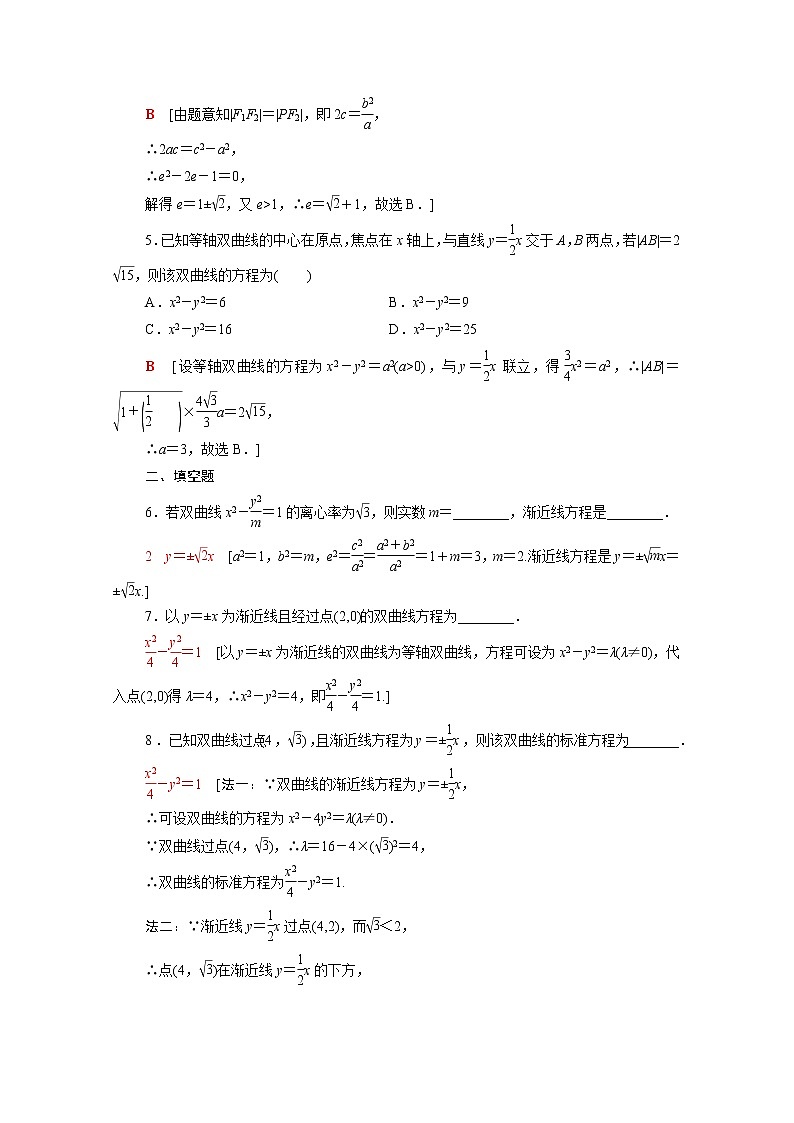 B [由题意知|F₁F₂|=|PF₂|,即 2c=b²/a,
∴2ac=c²-a²,
∴e²-2e-1=0,
解得 e=1±√2,又 e>1,∴e=√2+1,故选 B.]
5.已知等轴双曲线的中心在原点,焦点在 x 轴上,与直线 y=1/2x 交于 A,B 两点,若|AB|=2
√15,则该双曲线的方程为( )
A.x²-y²=6 B.x²-y²=9
C.x²-y²=16 D.x²-y²=25
B [设等轴双曲线的方程为 x²-y²=a²(a>0),与 y=1/2x 联立,得3/4x²=a²,∴|AB|=
√(1+(1/2))×4√3/3a=2√15,
∴a=3,故选 B.]
二、填空题
6.若双曲线 x²-y²/m=1 的离心率为√3,则实数 m=________,渐近线方程是________.
2 y=±√2x [a²=1,b²=m,e²=c²/a²=(a²+b²)/a²=1+m=3,m=2.渐近线方程是 y=±√mx=
±√2x.]
7.以 y=±x 为渐近线且经过点(2,0)的双曲线方程为________.
x²/4-y²/4=1 [以 y=±x 为渐近线的双曲线为等轴双曲线,方程可设为 x²-y²=λ(λ≠0),代
入点(2,0)得 λ=4,∴x²-y²=4,即x²/4-y²/4=1.]
8.已知双曲线过点(4,√3),且渐近线方程为 y=±1/2x,则该双曲线的标准方程为________.
x²/4-y²=1 [法一:∵双曲线的渐近线方程为 y=±1/2x,
∴可设双曲线的方程为 x²-4y²=λ(λ≠0).
∵双曲线过点(4,√3),∴λ=16-4×(√3)²=4,
∴双曲线的标准方程为x²/4-y²=1.
法二:∵渐近线 y=1/2x 过点(4,2),而√3<2,
∴点(4,√3)在渐近线 y=1/2x 的下方,